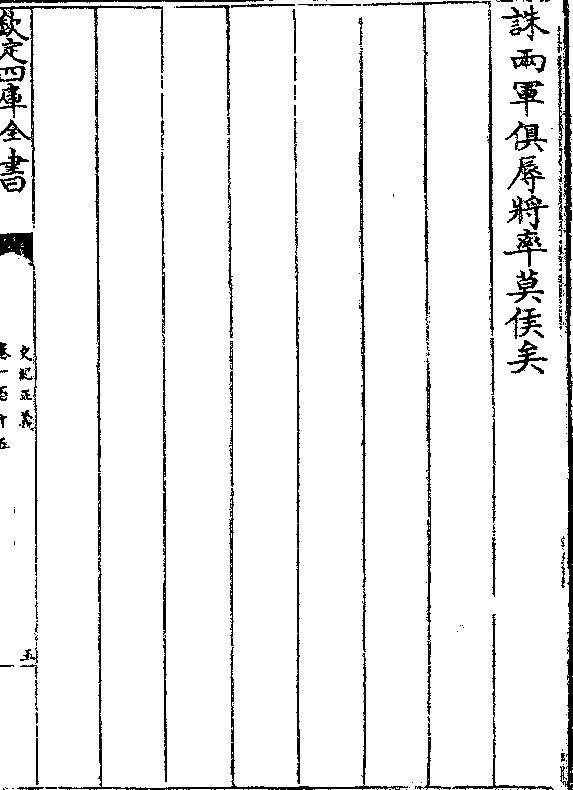 誅兩軍俱辱將率莫侯矣
欽定四庫全書
史記正義
卷一百十五
五